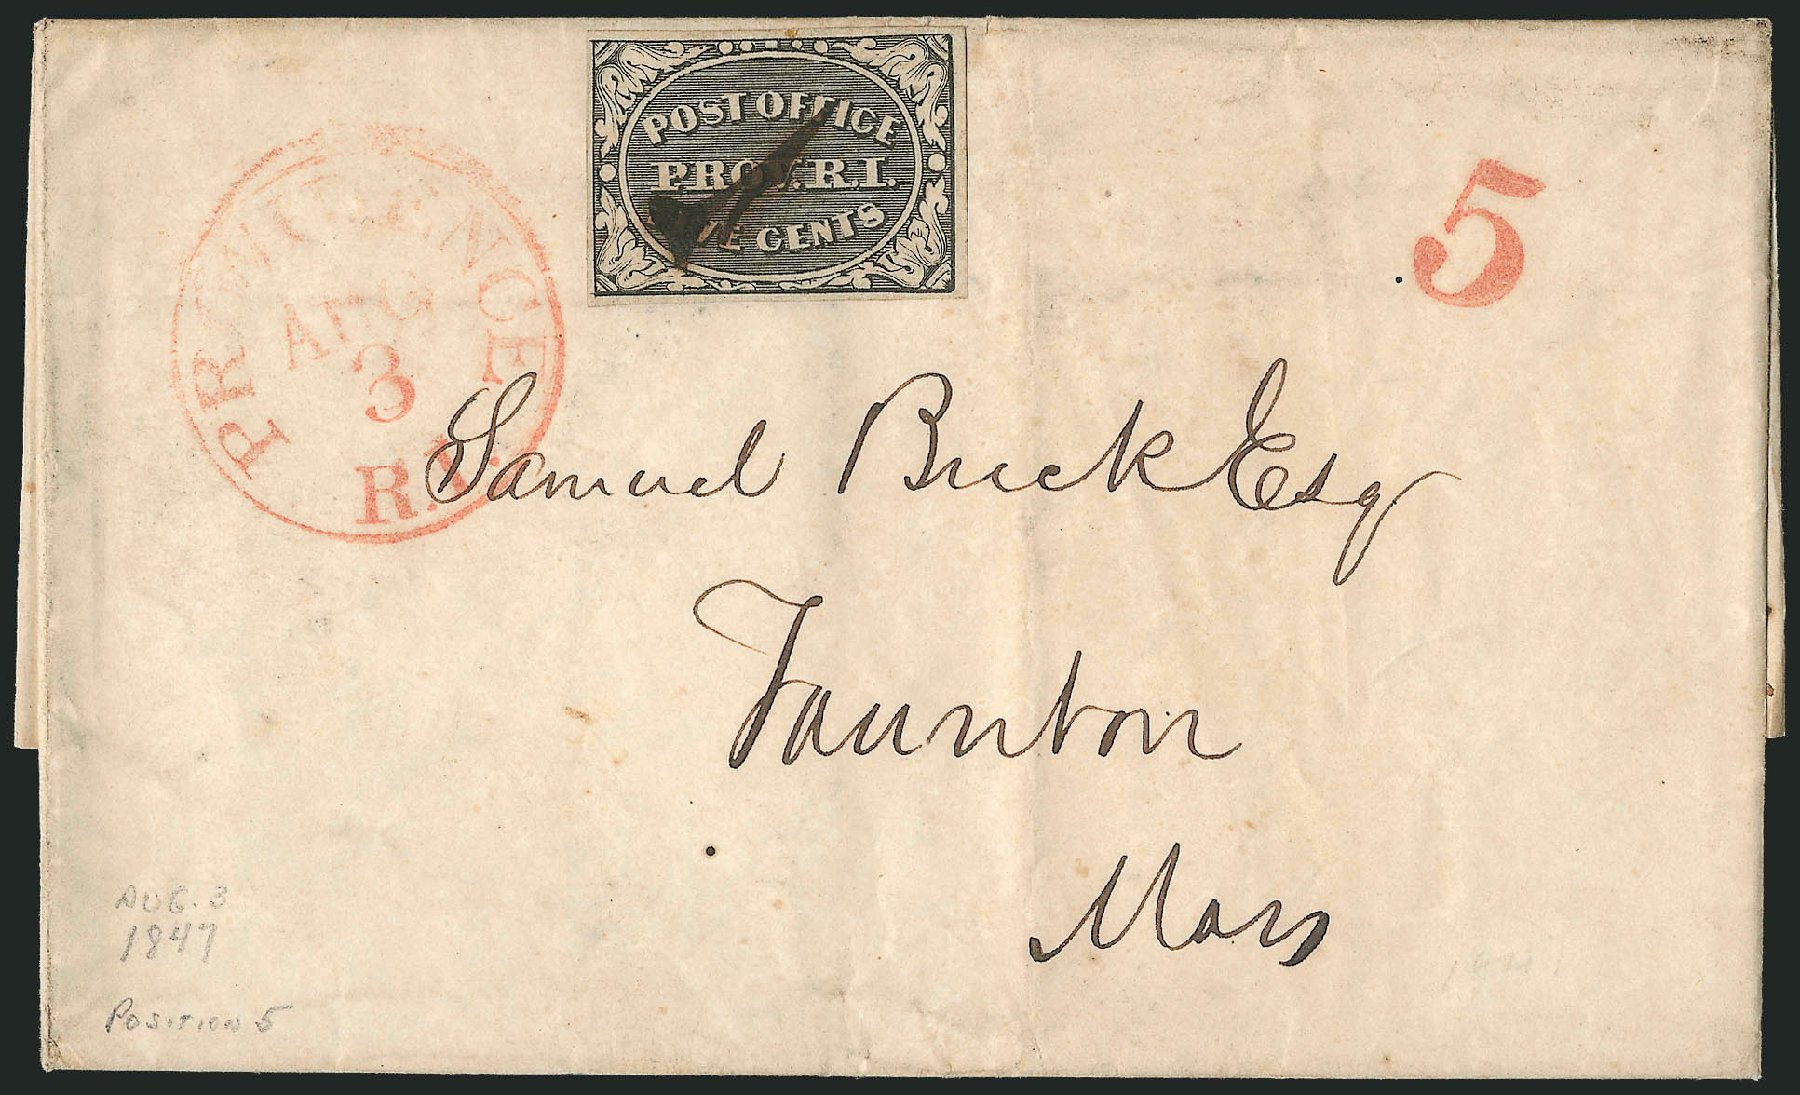 POST OFFICE
PROV. R.I.
FIVE CENTS
PROVIDENCE
AUG
3
R.I.
5
Samuel Buck Esq
Taunton
Mass
AUG. 3
1847
POSITION 5